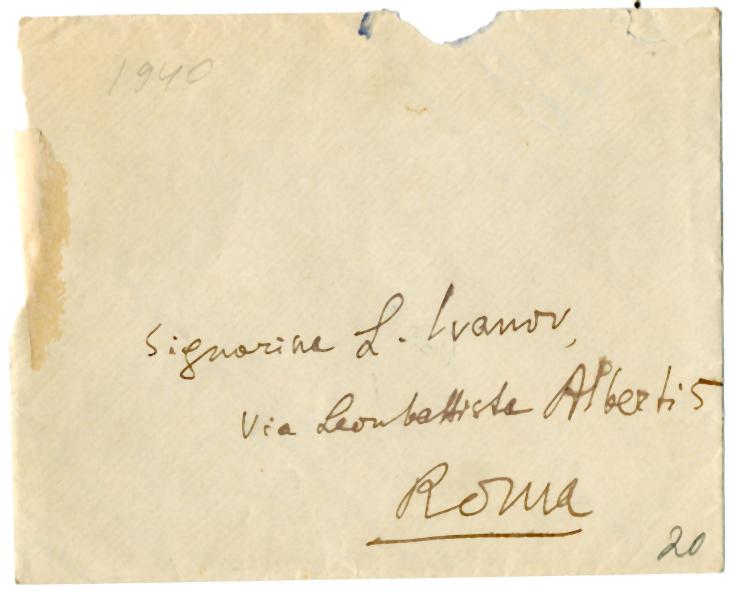 1940
Signorina L. Ivanov,
Via Leonbattista Alberti 5
Roma
20